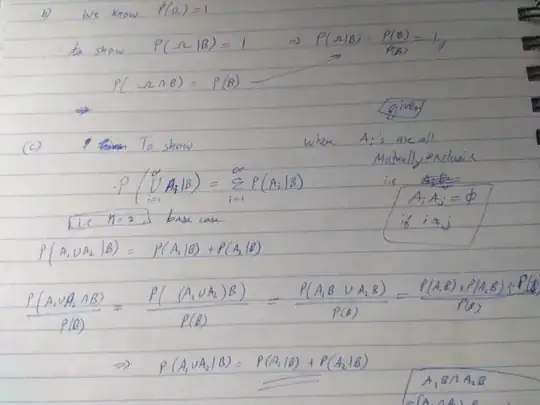 b) We know P(Ω) = 1
to show P(Ω|B) = 1 ⇒ P(Ω|B) = P(B)/P(B) = 1
P(Ω∩B) = P(B)
given
(c) To show where Ai's are all
Mutually exclusive
ie
P(∪_{i=1}^{∞} Ai|B) = Σ_{i=1}^{∞} P(Ai|B)
Ai Aj = ϕ
if i≠j
i.e n=2 base case
P(A1∪A2|B) = P(A1|B) + P(A2|B)
P(A1∪A2∩B)/P(B) = P((A1∪A2)B)/P(B) = P(A1B ∪ A2B)/P(B) = P(A1B)+P(A2B)/P(B)
⇒ P(A1∪A2|B) = P(A1|B) + P(A2|B)
A1B∩A2B